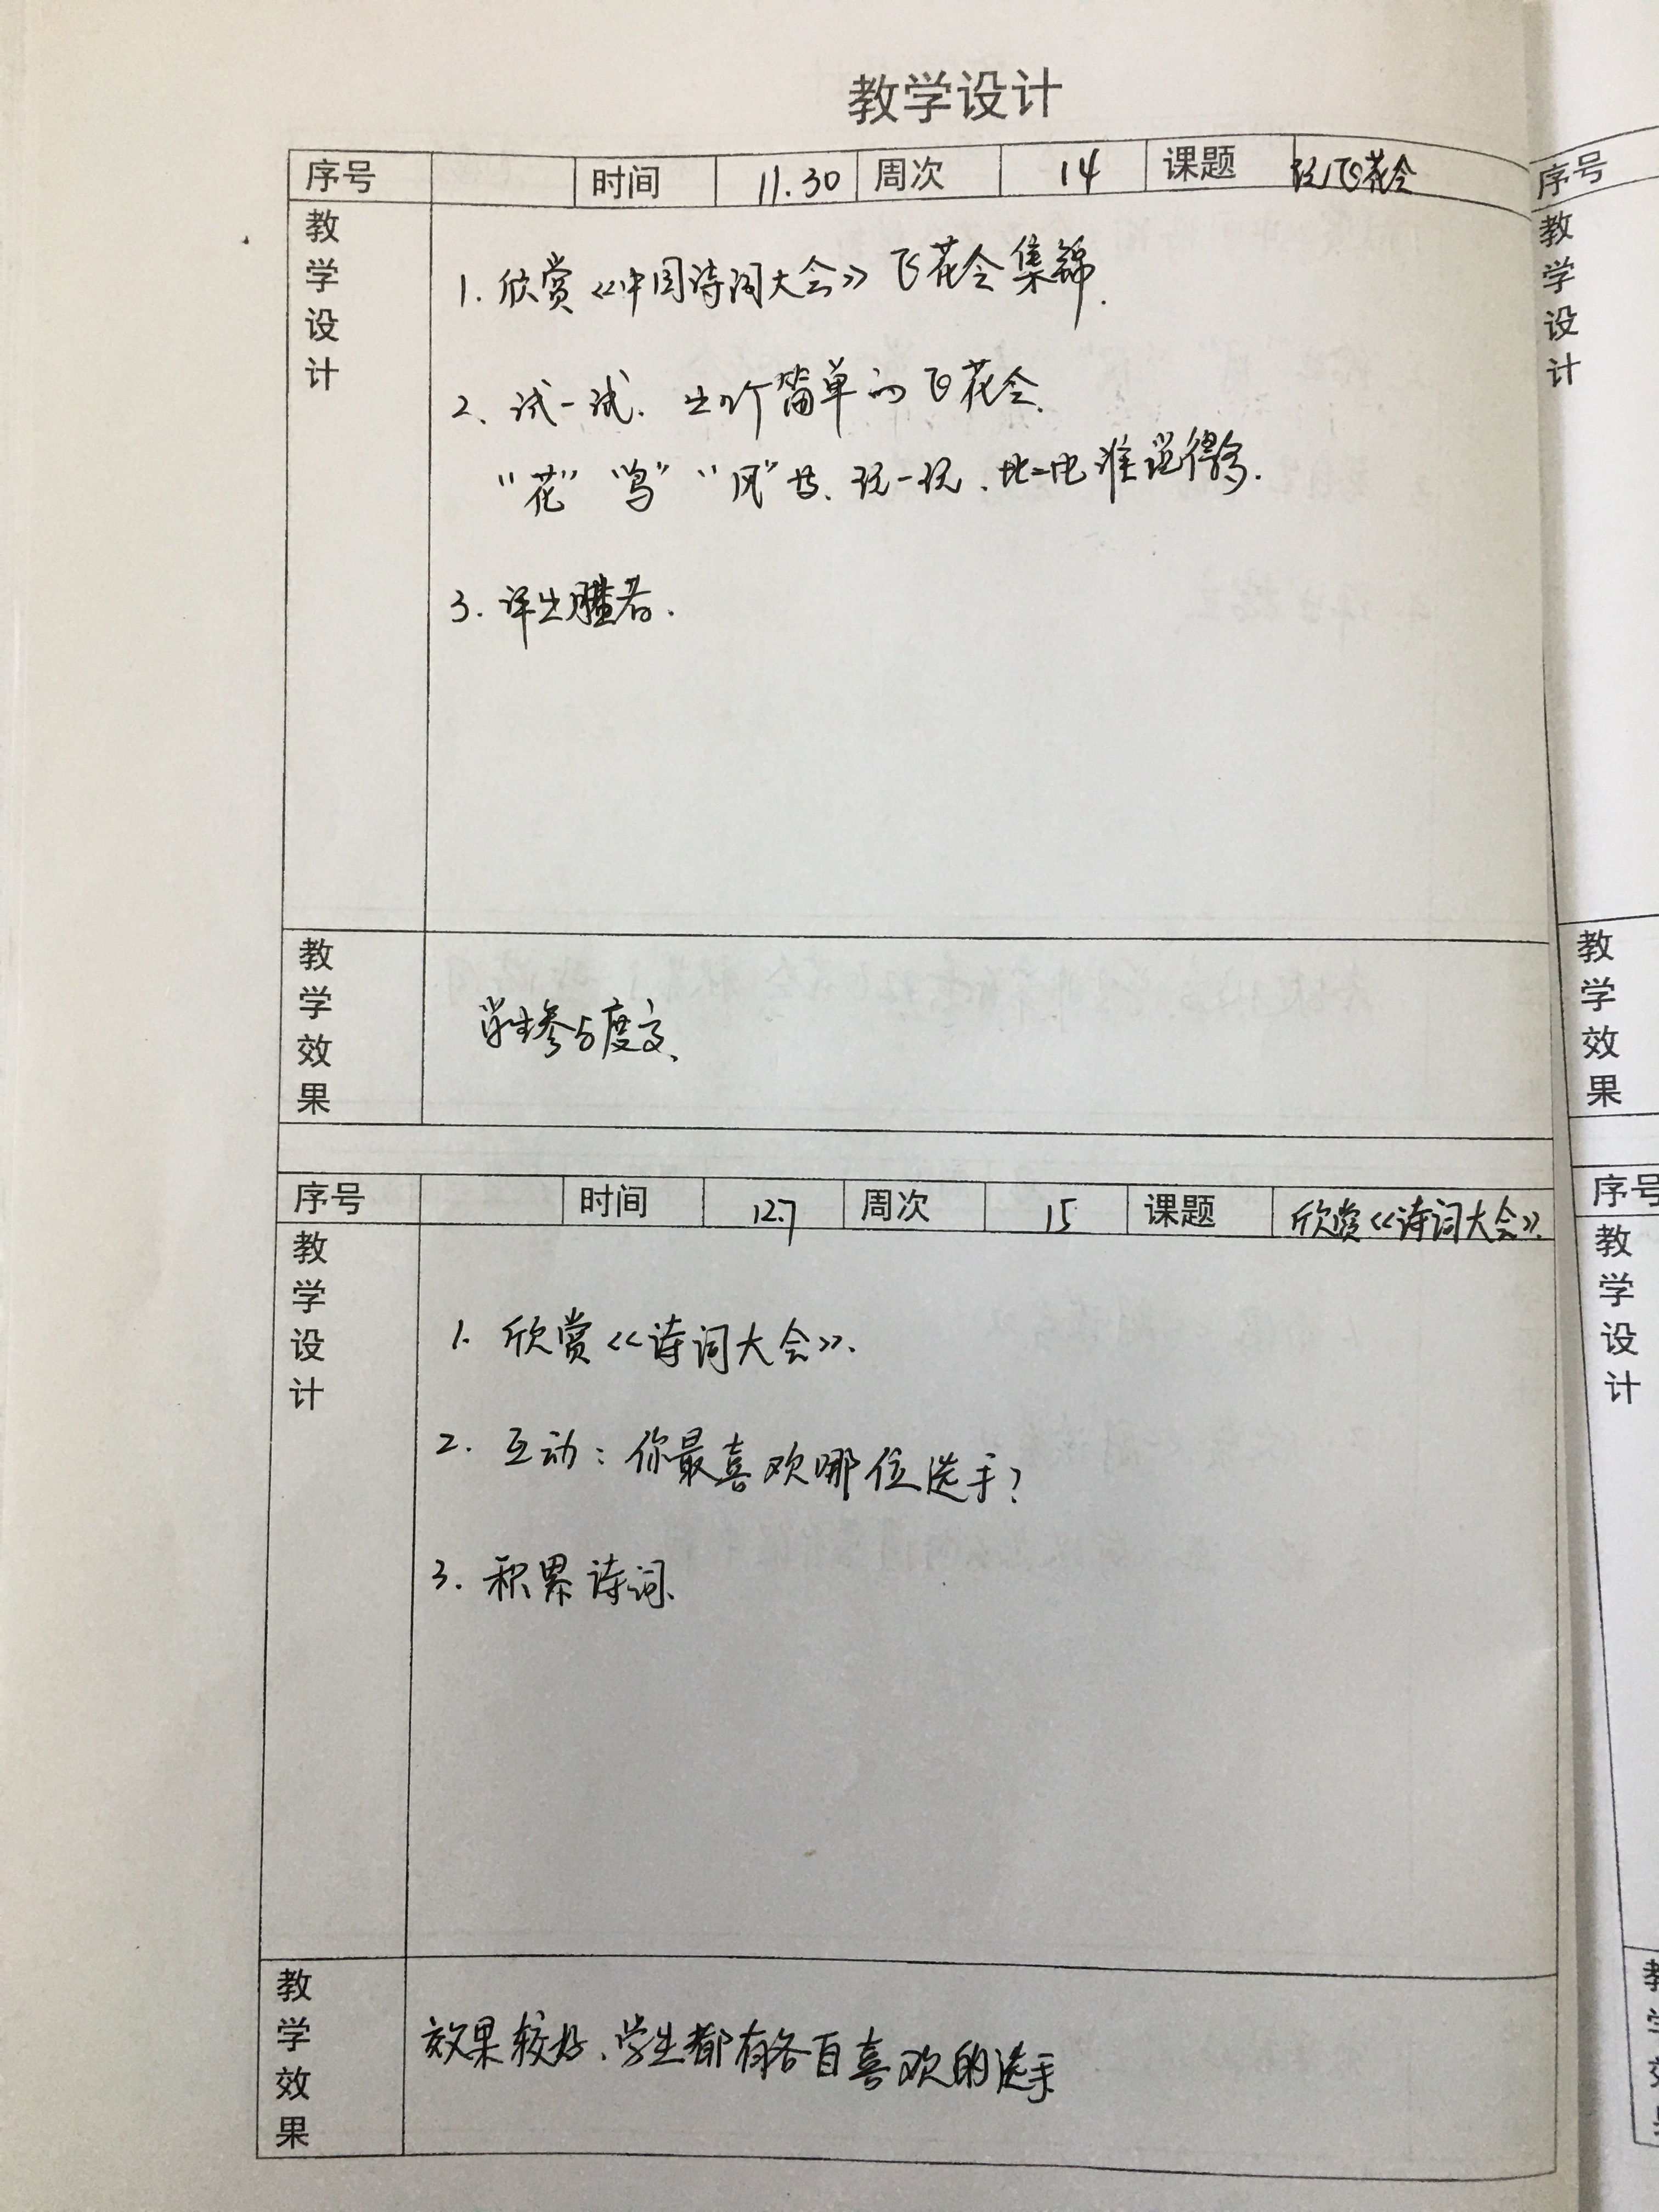 教学设计
序号 时间 11.30 周次 14 课题 玩飞花令
教学设计
1. 欣赏《中国诗词大会》飞花令集锦.
2、试一试. 出几个简单的飞花令.
“花”“鸟”“风”等、玩一玩、比一比谁说得多.
3. 评出擂者.
教学效果
学生参与度高、
序号 时间 12.7 周次 15 课题 欣赏《诗词大会》.
教学设计
1. 欣赏《诗词大会》.
2. 互动：你最喜欢哪位选手？
3. 积累诗词.
教学效果
效果较好、学生都有各自喜欢的选手
序号
教学设计
教学效果
序号
教学设计